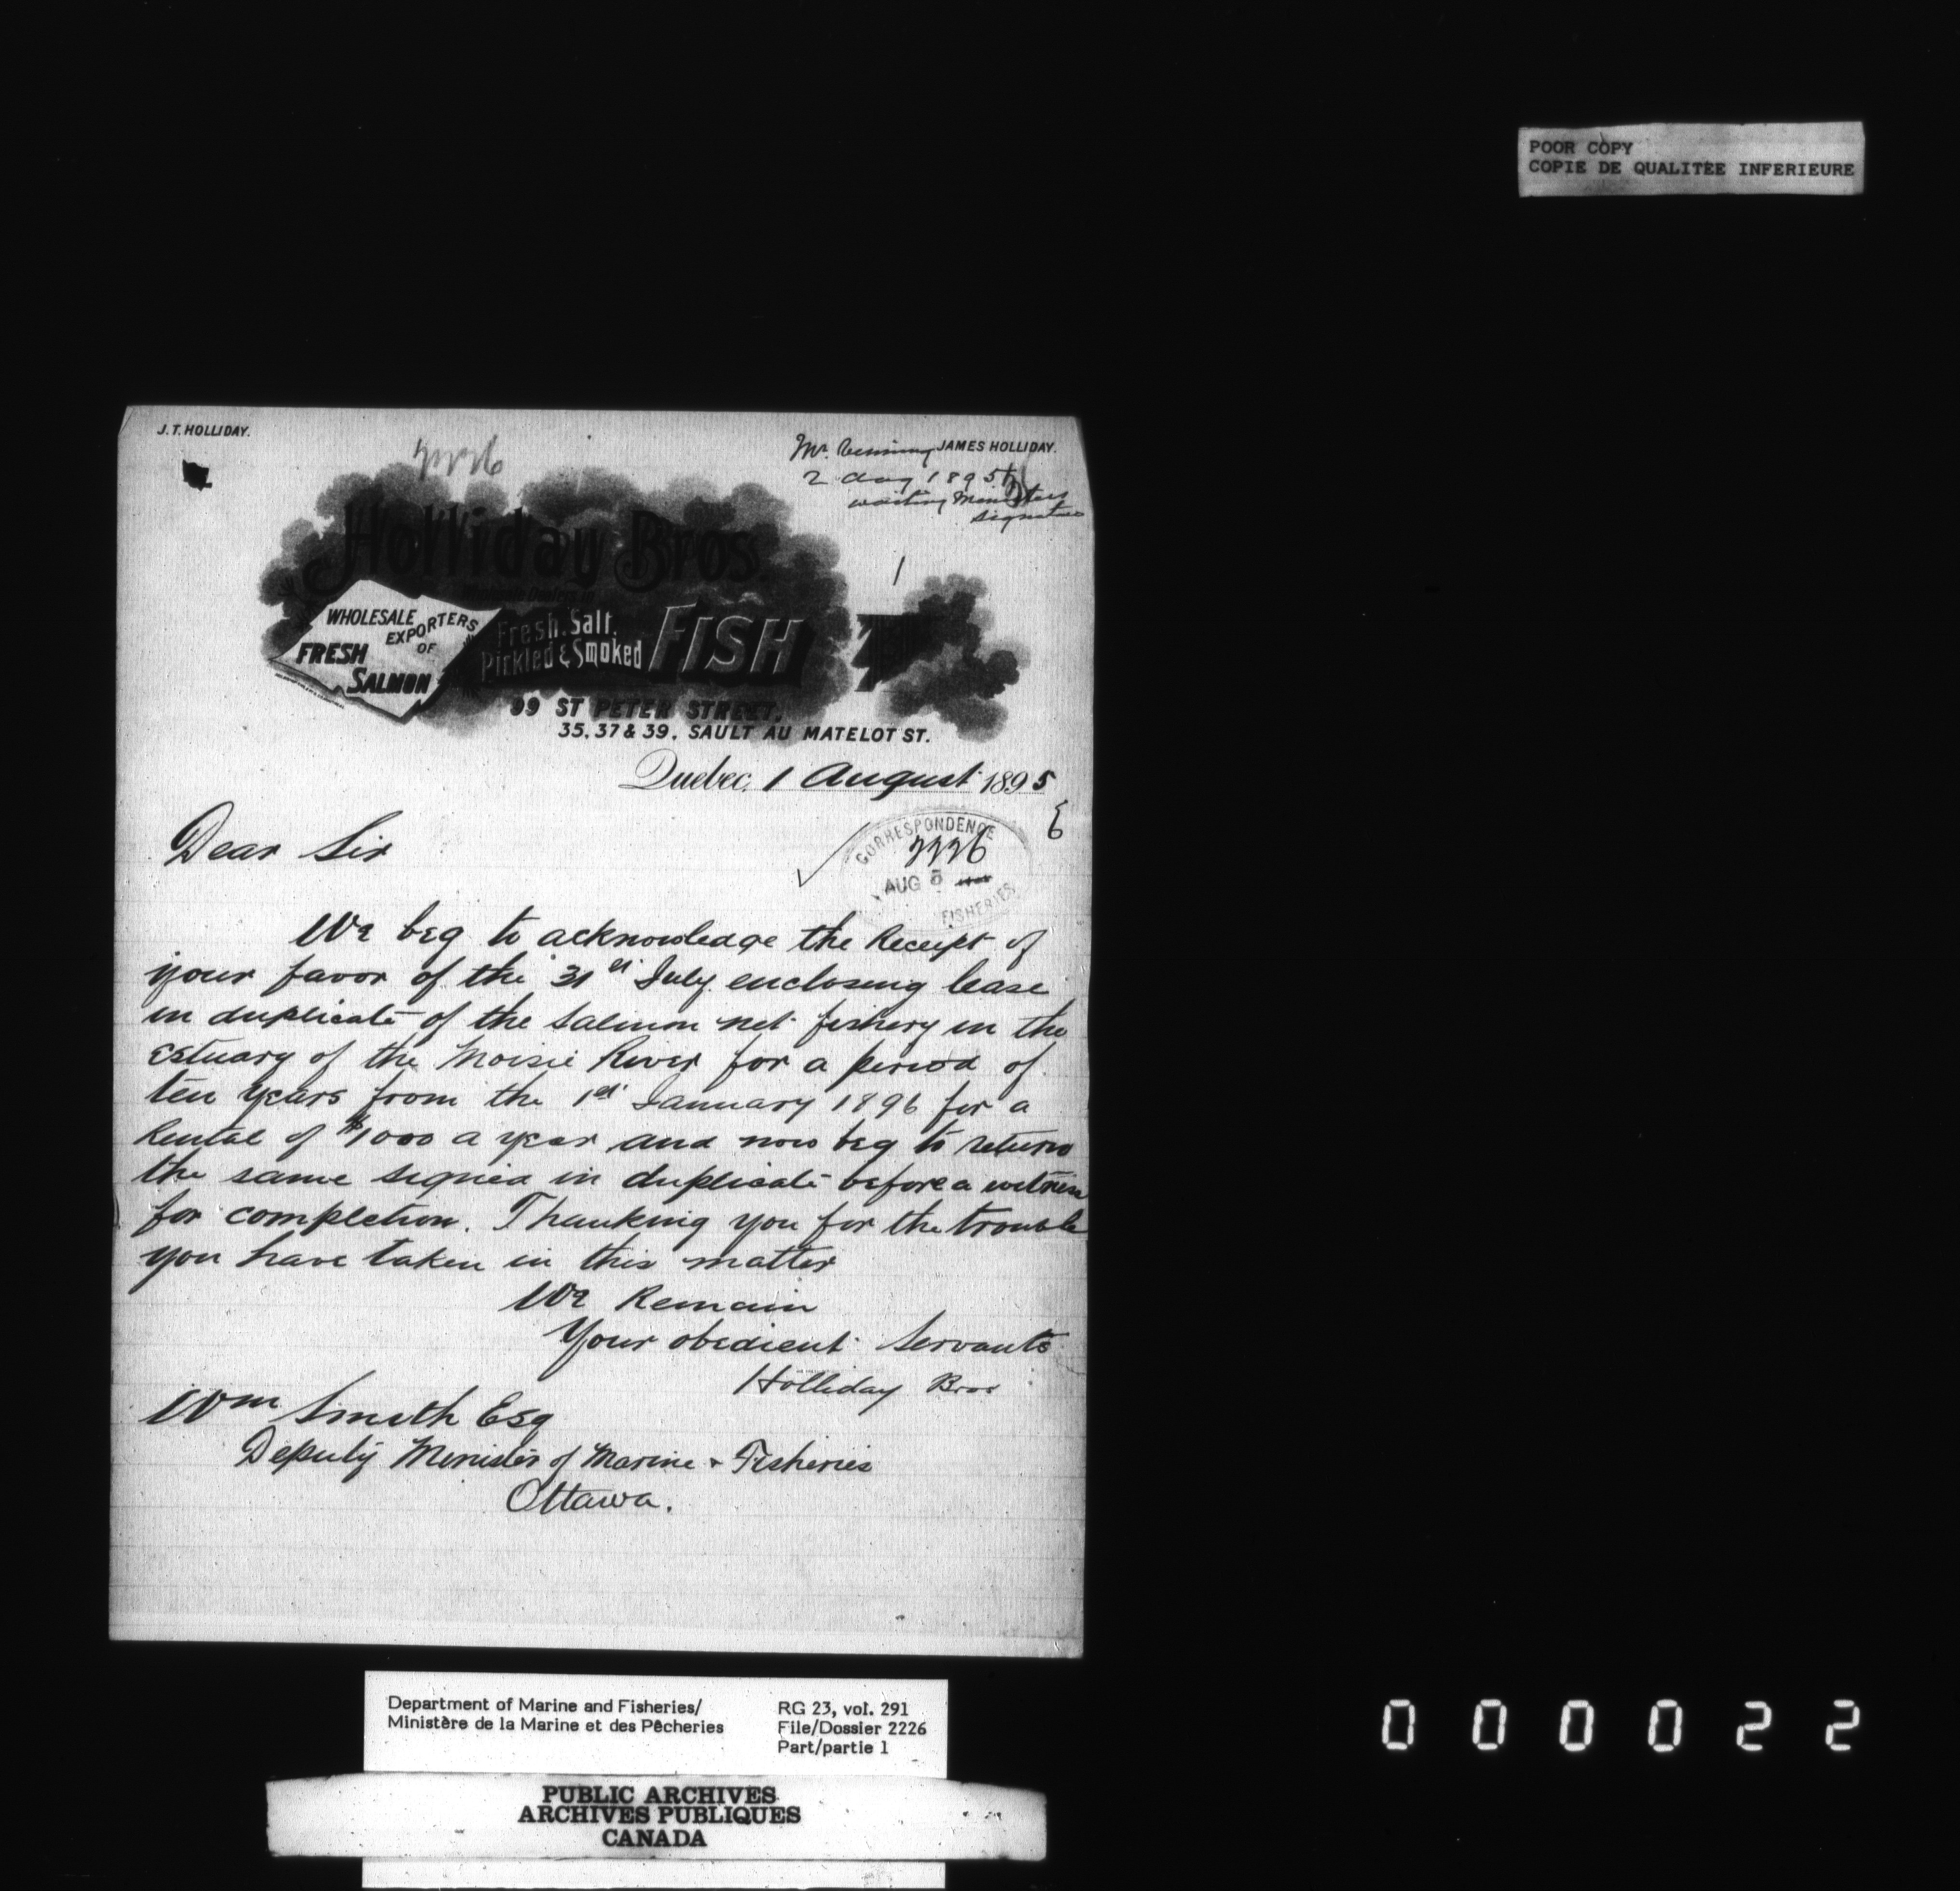 POOR COPY
COPIE DE QUALITÉE INFERIEURE
J. T. HOLLIDAY.
2226
Mr. JAMES HOLLIDAY.
2 Aug 1895
waiting Ministers
signature
Holliday Bros.
Wholesale Dealers in
1
WHOLESALE
EXPORTERS
OF
FRESH
SALMON
Fresh, Salt,
Pickled & Smoked
FISH
99 ST PETER STREET,
35, 37 & 39, SAULT AU MATELOT ST.
Quebec, 1 August 1895
Dear Sir
CORRESPONDENCE
2226
AUG 5
FISHERIES
We beg to acknowledge the Receipt of
your favor of the 31st July enclosing lease
in duplicate of the Salmon net fishery in the
Estuary of the Moisie River for a period of
ten years from the 1st January 1896 for a
Rental of $1000 a year and now beg to return
the same signed in duplicate before a witness
for completion. Thanking you for the trouble
you have taken in this matter
We Remain
Your obedient Servants
Holliday Bros
Wm Smith Esq
Deputy Minister of Marine & Fisheries
Ottawa.
Department of Marine and Fisheries/
Ministère de la Marine et des Pêcheries
RG 23, vol. 291
File/Dossier 2226
Part/partie 1
PUBLIC ARCHIVES
ARCHIVES PUBLIQUES
CANADA
000022